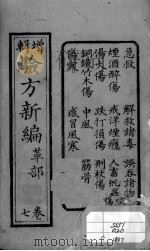 急救 解救諸毒 誤吞諸物
煙酒醉傷 戒洋煙癮 人畜
湯火傷 跌打損傷 刑杖傷
銅鐵竹木傷 中風 筋骨
感冒風寒
增輯
驗方新編 革部
卷七